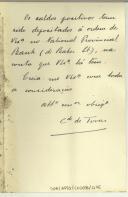 Os saldos positivos tem
sido depositados à ordem de
V.ª no National Provincial
Bank (de Baker St), na
conta que V.ª lá tem.
Creia me V.ª com toda
a consideração
Att.º
C. de Tovar